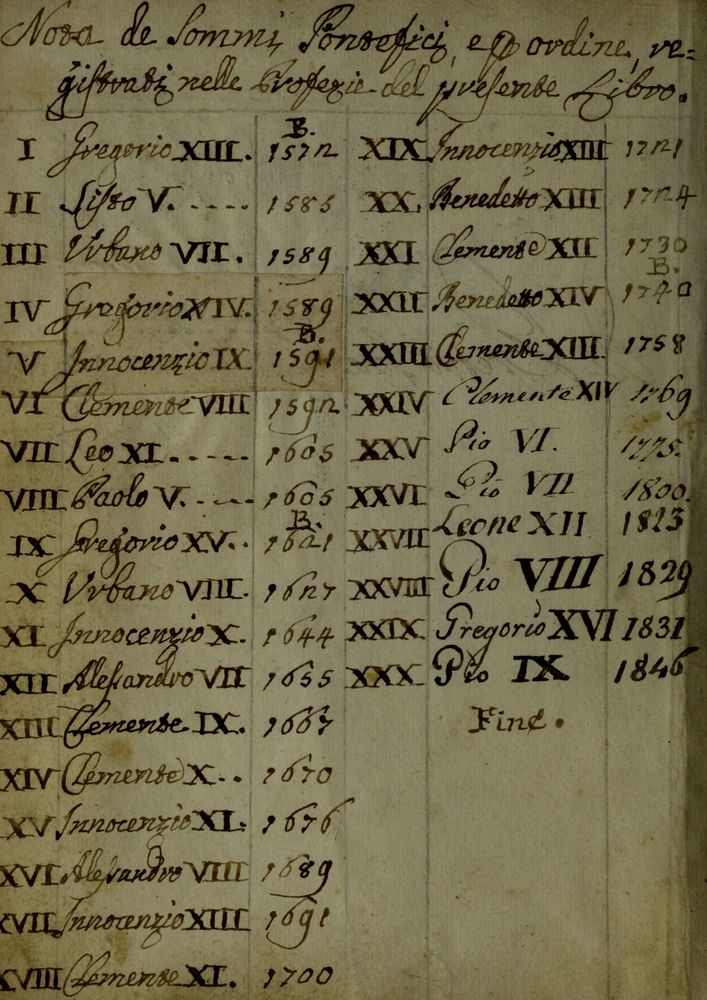 Nota de Sommi Pontefici, e p ordine, re=
gistrati nelle Profezie del presente Libro.
B.
I Gregorio XIII. 1572
II Sisto V. ..... 1585
III Vrbano VII. 1589
IV Gregorio XIV. 1589
B.
V Innocenzio IX 1591
VI Clemente VIII 1592
VII Leo XI. ..... 1605
VIII Paolo V. .... 1605
B.
IX Gregorio XV.. 1621
X Vrbano VIII. 1627
XI Innocenzio X. 1644
XII Alessandro VII 1655
XIII Clemente IX. 1667
XIV Clemente X.. 1670
XV Innocenzio XI. 1676
XVI Alessandro VIII 1689
XVII Innocenzio XIII 1691
XVIII Clemente XI. 1700
XIX Innocenzio XIII 1721
XX. Benedetto XIII 1724
XXI Clemente XII 1730
B.
XXII Benedetto XIV 1740
XXIII Clemente XIII. 1758
XXIV Clemente XIV 1769
XXV Pio VI. 1775.
XXVI Pio VII 1800.
XXVII Leone XII 1823
XXVIII Pio VIII 1829
XXIX Gregorio XVI 1831
XXX Pio IX 1846
Fine.